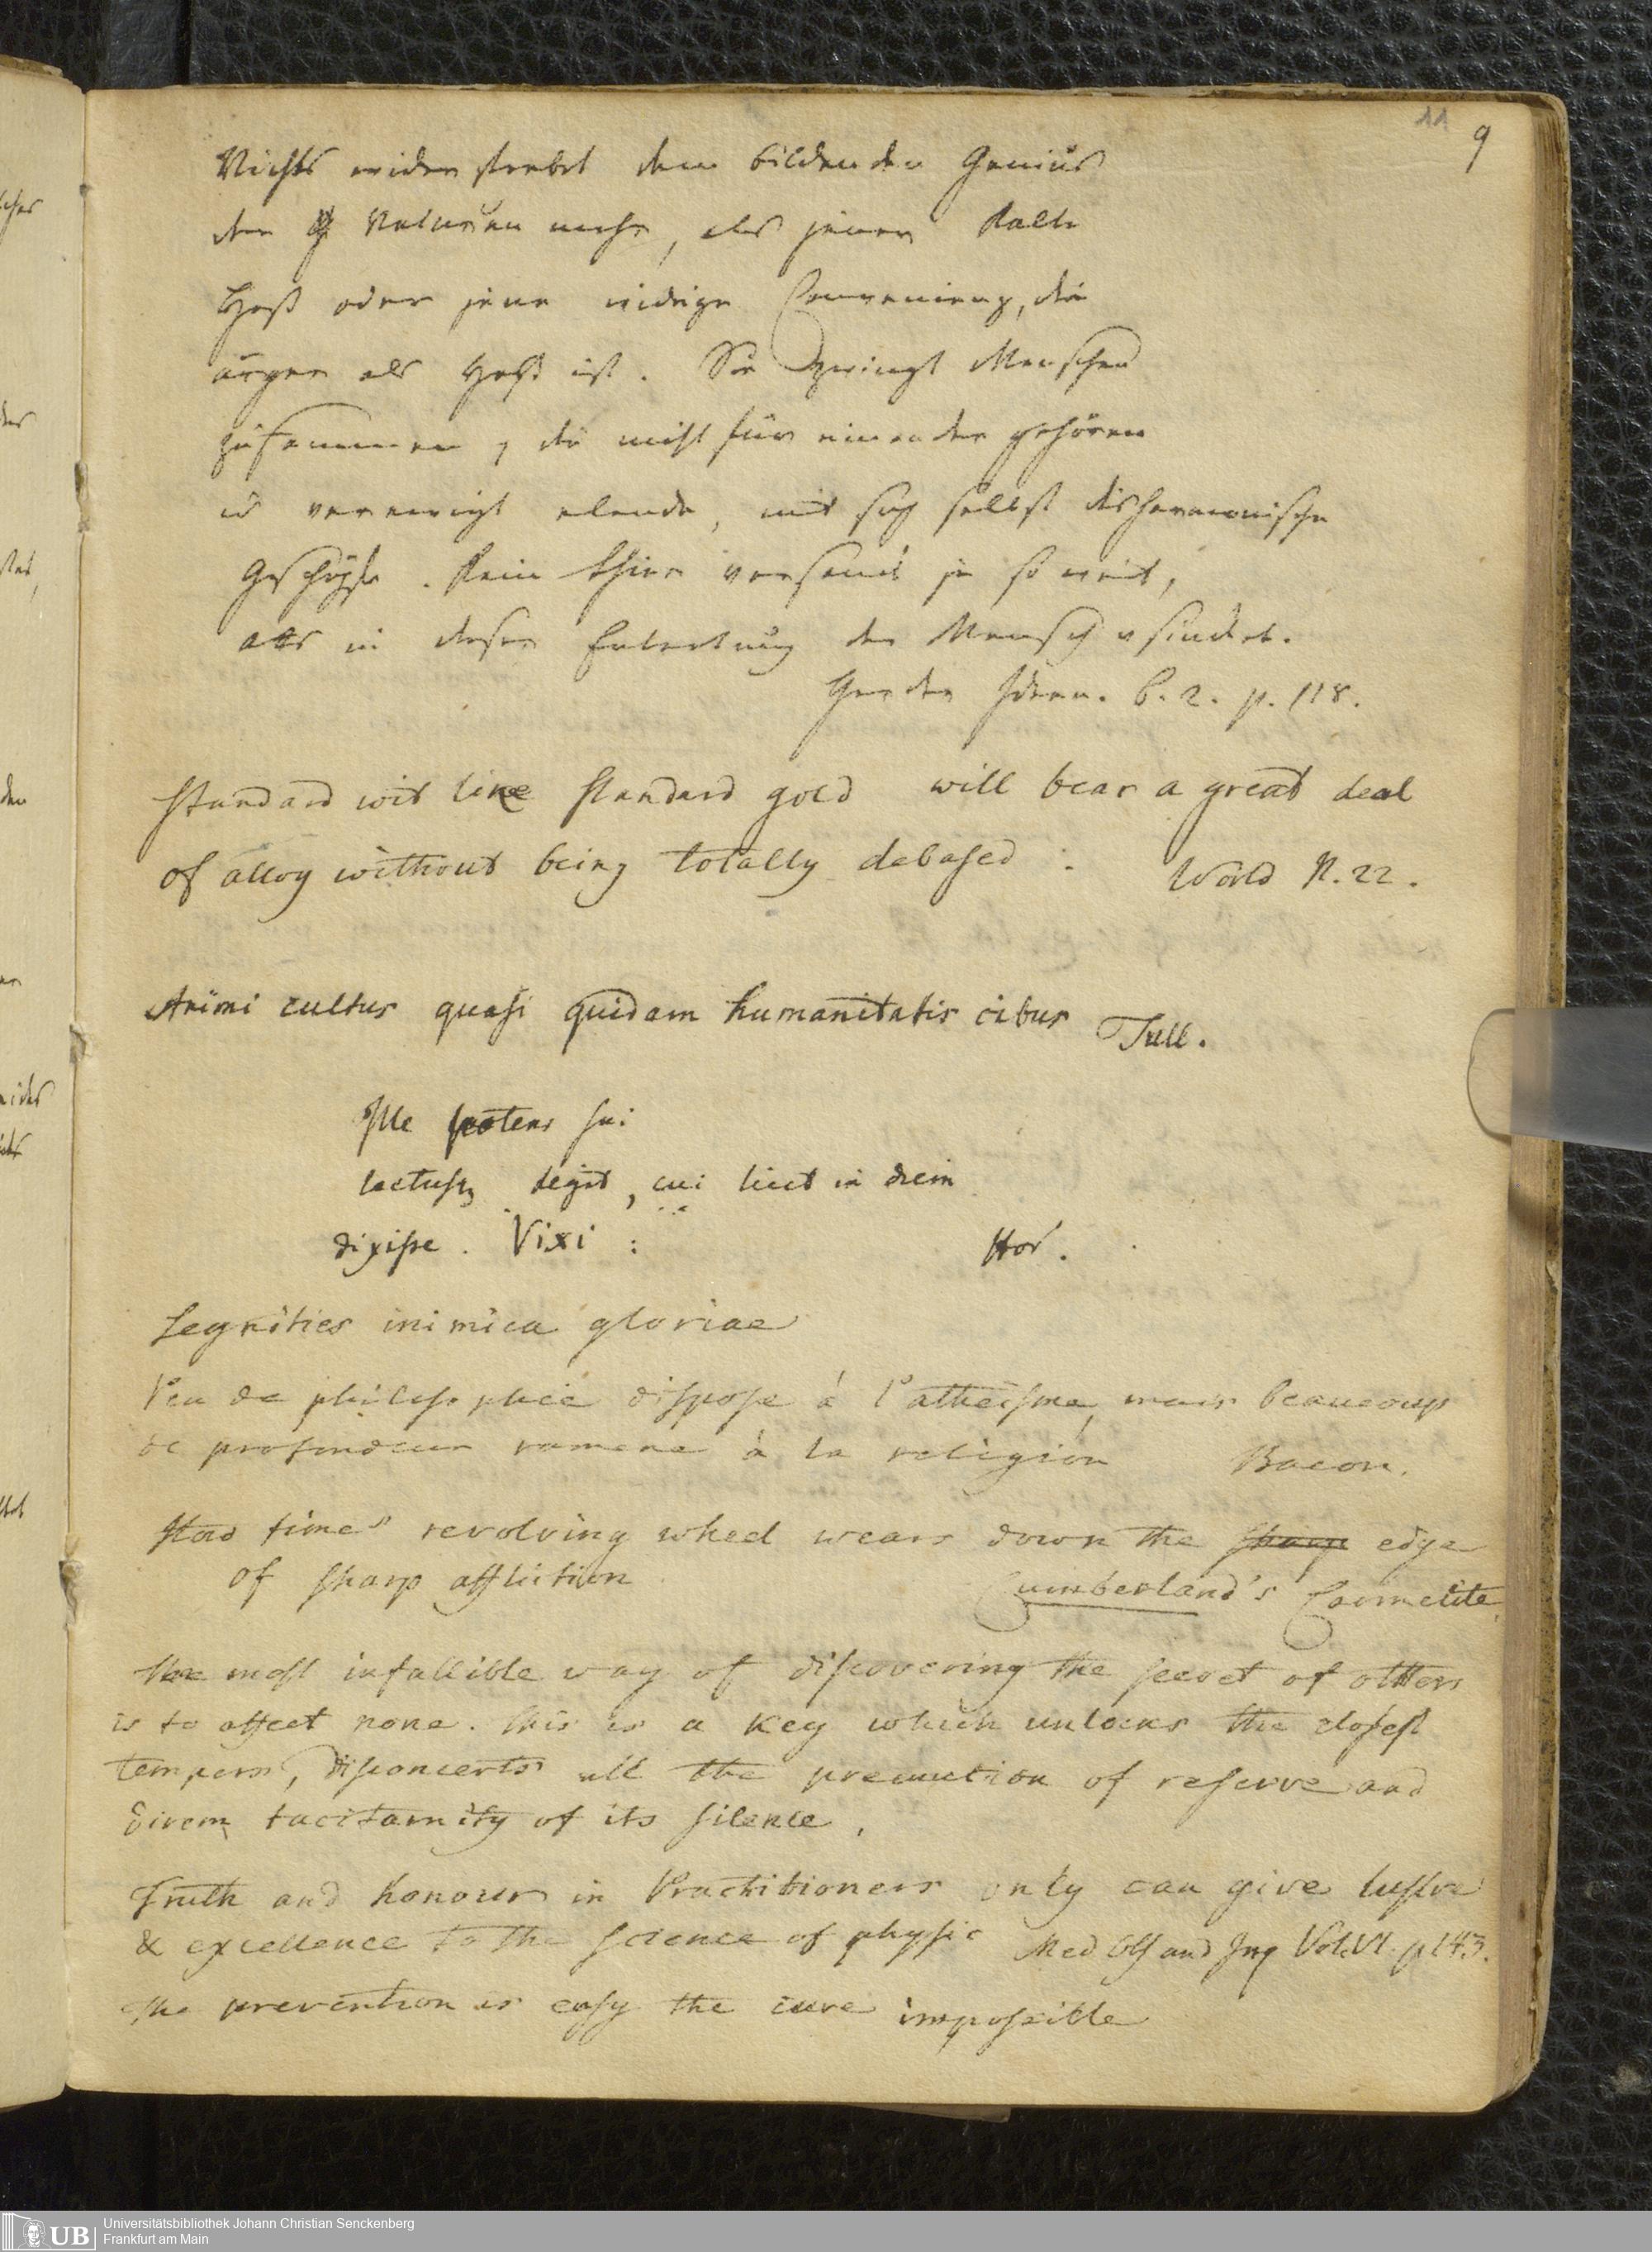 11 9
Nichts widerstrebt dem bildenden Genius
der Naturen mehr, als jener kalte
Haß oder jene widrige Convenienz, die
ärger als Haß ist. Sie zwingt Menschen
zusammen, die nicht für einander gehören
u verewigt elende, mit sich selbst disharmonische
Geschöpfe. Kein Thier versank je so weit,
als in dieser Entartung der Mensch versinket.
Herder Ideen. B. 2. p. 118.
Standard wit like standard gold will bear a great deal
of alloy without being totally debased. World N. 22.
Animi cultus quasi quidam humanitatis cibus Tull.
Ille potens sui
laetusq degit, cui licet in diem
dixisse. Vixi: Hor.
Segnities inimica gloriae
Peu de philosophie dispose á l'atheisme, mais beaucoup
de profondeur ramene à la religion Bacon.
Slow time's revolving wheel wears down the sharp edge
of sharp affliction Cumberland's Carmelite
The most infallible way of discovering the secret of others
is to affect none. This is a key which unlocks the closest
tempers, disconcerts all the precaution of reserve and
taciturnity of its silence.
Truth and honour in Practitioners only can give lustre
& excellence to the science of physic Med Obs and Inq Vol. VI. p 143.
The prevention is easy the cure impossible
UB Universitätsbibliothek Johann Christian Senckenberg
Frankfurt am Main